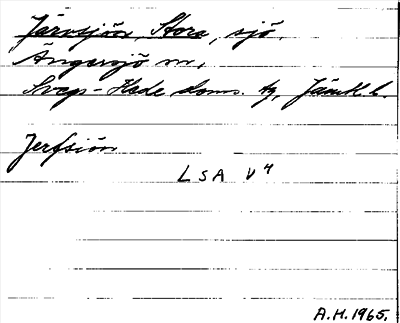 Järvsjön, Stora, sjö.
Ängersjö sn,
Sveg-Hede doms. tg, Jämtl. l.
Jerfsiön
LSA V4
A.H. 1965.